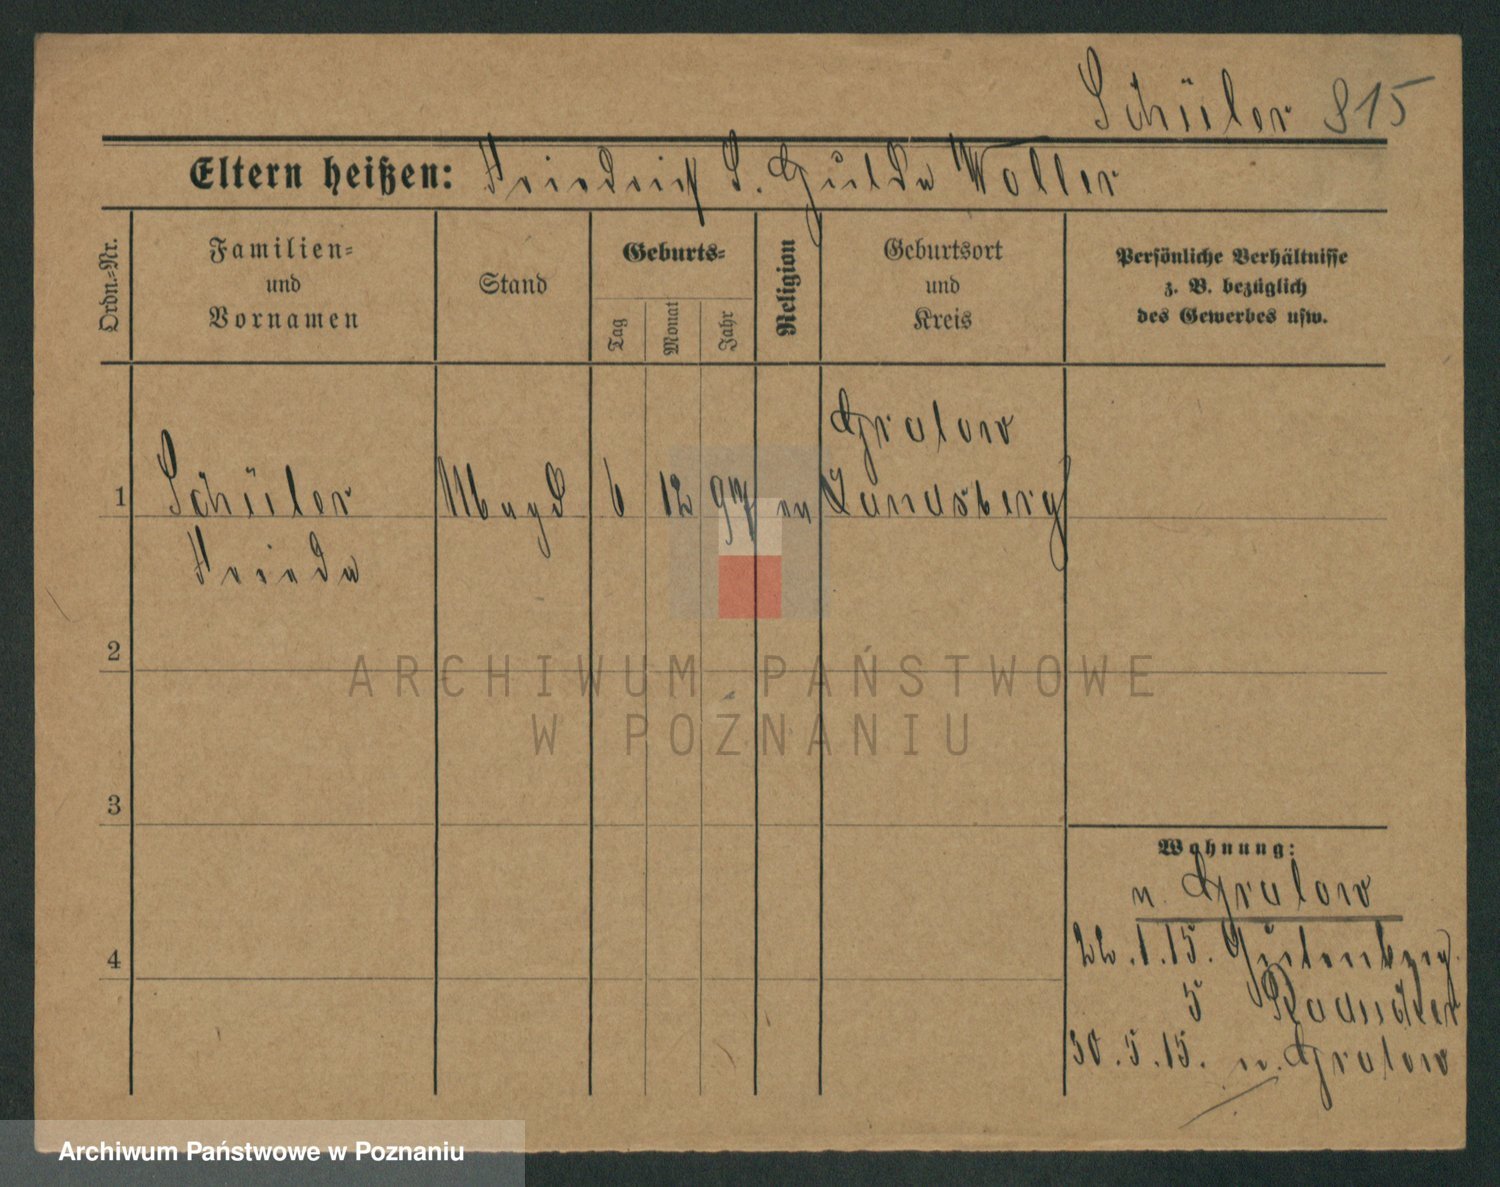 Schüler 815
Eltern heißen: Friedrich S. Hulda Woller
Ordn.-Nr.
Familien- und Vornamen
Stand
Geburts-
Tag
Monat
Jahr
Religion
Geburtsort und Kreis
Persönliche Verhältnisse
z. B. bezüglich
des Gewerbes usw.
Gralow
1 Schüler Magd 6 12 97 ev Landsberg
Frieda
2
3
4
ARCHIWUM PAŃSTWOWE
W POZNANIU
Wohnung:
n. Gralow
22.1.15. Gutenberg
5
30.5.15. n. Gralow
Archiwum Państwowe w Poznaniu